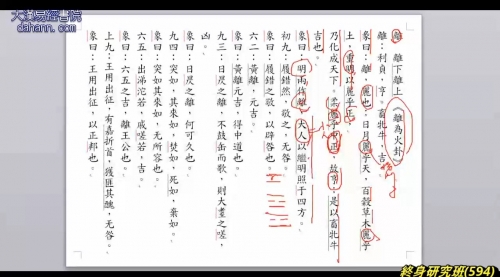 大易易經書院
dahann.com
離 離下離上《離為火卦》
離:利貞,亨。畜牝牛,吉。
彖曰:離,麗也。日月麗乎天,百穀草木麗乎
土,重明以麗乎正,
乃化成天下。柔麗乎中正,故亨;是以畜牝牛
吉也。
象曰:明兩作離,大人以繼明照于四方。
初九:履錯然,敬之,无咎。
象曰:履錯之敬,以辟咎也。
六二:黃離,元吉。
象曰:黃離元吉,得中道也。
九三:日昃之離,不鼓缶而歌,則大耋之嗟,
凶。
象曰:日昃之離,何可久也。
九四:突如,其來如,焚如,死如,棄如。
象曰:突如其來如,无所容也。
六五:出涕沱若,戚嗟若,吉。
象曰:六五之吉,離王公也。
上九:王用出征,有嘉折首,獲匪其醜,无咎。
象曰:王用出征,以正邦也。
終身研究班(594)